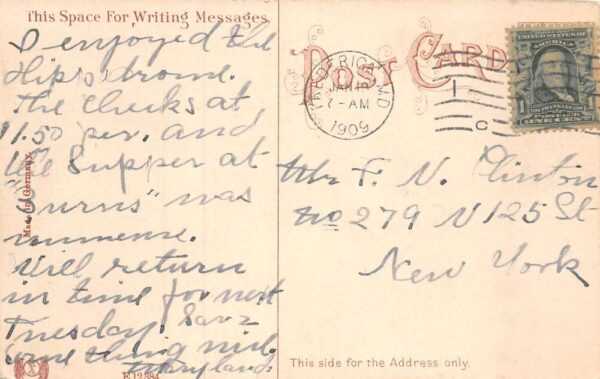 This Space For Writing Messages
I enjoyed the
Hippodrome.
The Checks at
11.50 per. and
the Supper at
"Burns" was
immense.
Will return
in time for next
Tuesday. Save
some thing nice.
Maryland
Made in Germany
E 12384
POST CARD
FREDERICK, MD.
JAN
7-AM
1909
UNITED STATES OF
AMERICA
FRANKLIN
POSTAGE
1 ONE CENT 1
Mr F. N. Clinton
No 279 W 125 St
New York
This side for the Address only.